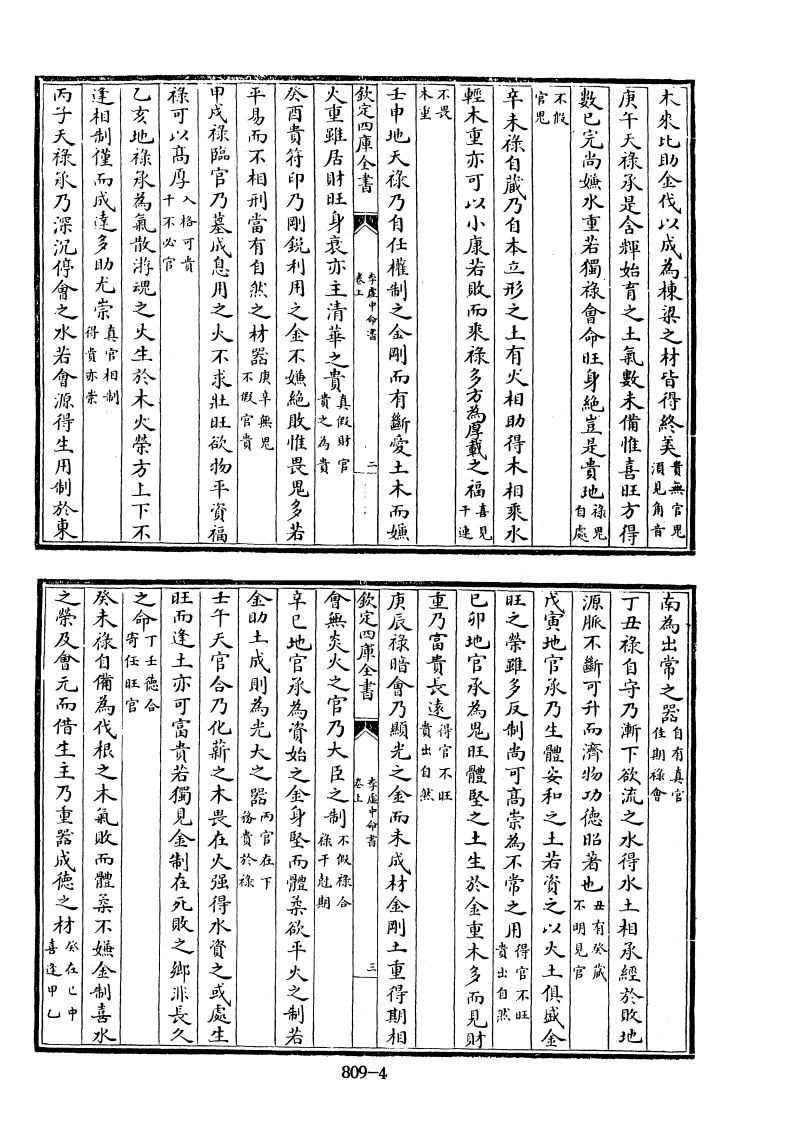 木來比助金伐以成為棟梁之材皆得終美貴無官鬼須見角音
庚午天祿承是含輝始育之土氣數未備惟喜旺方得
數已完尚嫌水重若獨祿會命旺身絕豈是貴地祿鬼自處
不假官鬼
辛未祿自藏乃自本立形之土有火相助得木相乘水
輕木重亦可以小康若敗而乘祿多方為厚載之福喜見干連
不畏木重
壬申地天祿乃自任權制之金剛而有斷愛土木而嫌
欽定四庫全書 李虛中命書卷上 二
火重雖居財旺身衰亦主清華之貴真假財官貴之為貴
癸酉貴符印乃剛銳利用之金不嫌絕敗惟畏鬼多若
平易而不相刑當有自然之材器庚辛無鬼不假官貴
甲戌祿臨官乃墓成息用之火不求壯旺欲物平資福
祿可以高厚入格可貴干不必官
乙亥地祿承為氣散游魂之火生於木火榮方上下不
逢相制僅而成達多助尤崇真官相制得貴亦崇
丙子天祿承乃深沉停會之水若會源得生用制於東
南為出常之器自有真官佳期祿會
丁丑祿自守乃漸下欲流之水得水土相承經於敗地
源脈不斷可升而濟物功德昭著也丑有癸藏不明見官
戊寅地官承乃生體安和之土若資之以火土俱盛金
旺之榮雖多反制尚可高崇為不常之用得官不旺貴出自然
己卯地官承為鬼旺體堅之土生於金重木多而見財
重乃富貴長遠得官不旺貴出自然
庚辰祿暗會乃顯光之金而未成材金剛土重得期相
欽定四庫全書 李虛中命書卷上 三
會無炎火之官乃大臣之制不假祿合祿干尅期
辛巳地官承為資始之金身堅而體柔欲平火之制若
金助土成則為光大之器丙官在下落貴於祿
壬午天官合乃化薪之木畏在火强得水資之或處生
旺而逢土亦可富貴若獨見金制在死敗之鄉非長久
之命丁壬德合寄任旺官
癸未祿自備為伐根之木氣敗而體柔不嫌金制喜水
之榮及會元而借生主乃重器成德之材癸在己中喜逢甲乙
809-4